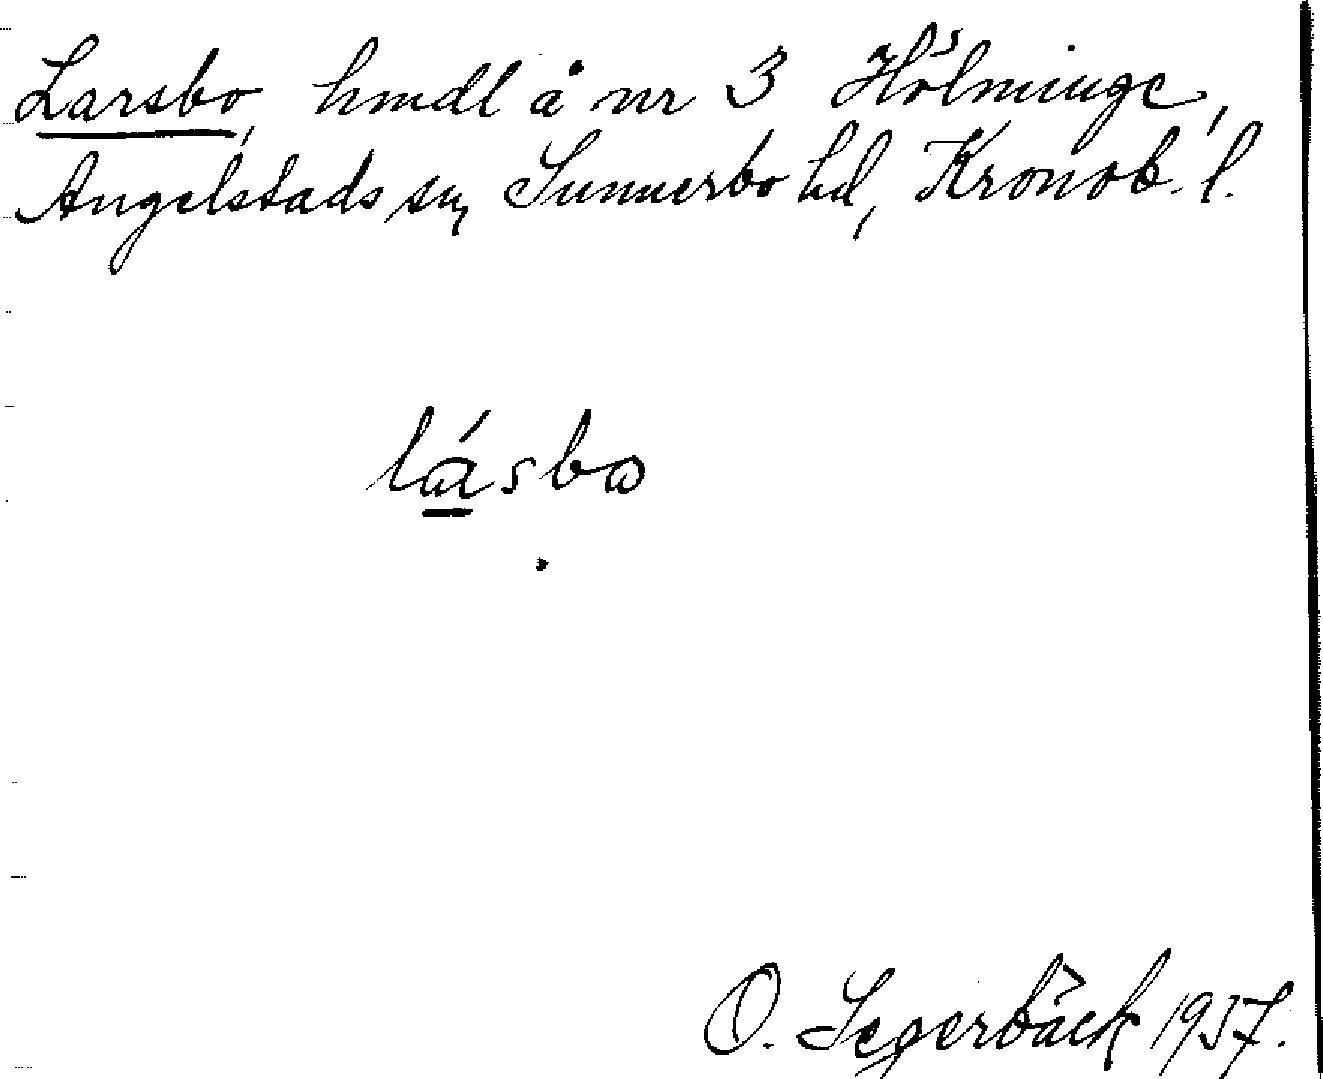 Larsbo, hmdl å nr 3 Hölminge,
Angelstads sn, Sunnerbo hd, Kronob. l.
lásbo
O. Segerbäck 1957.